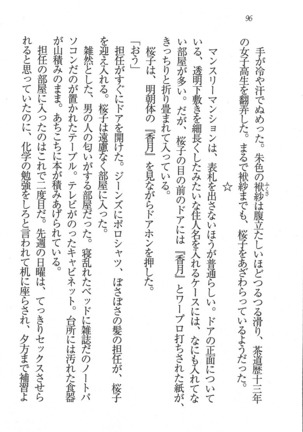 96
手が冷や汗でぬめった。朱色の袱紗は腹立たしいほどつるつる滑り、茶道歴十三年
ふくさ
の女子高生を翻弄した。まるで袱紗までも、桜子をあざわらっているようだった。
☆
マンスリーマンションは、表札を出さないほうが普通らしい。ドアの正面について
いる、透明下敷きを細長くしたみたいな住人名を入れるケースには、なにも入れてな
い部屋が多い。だが、桜子の目の前のドアには『香月』とワープロ打ちされた紙が、
きっちりと折り畳まれて入っている。
桜子は、明朝体の『香月』を見ながらドアホンを押した。
「おう」
担任がすぐにドアを開けた。ジーンズにポロシャツ、ぼさぼさの髪の担任が、桜子
を迎え入れる。桜子は遠慮なく部屋に入った。
雑然とした、男の人の匂いがする部屋だった。寝乱れたベッドに雑誌だのノートパ
ソコンだのが置かれたテーブル。テレビがのったキャビネット。台所には汚れた食器
が山積みのまま。あちこちに本が積みあげられている。
担任の部屋に入ったのはこれで二度目だ。先週の日曜は、てっきりセックスさせら
れると思っていたのに、化学の勉強をしろと言われて机に座らされ、夕方まで補習よ